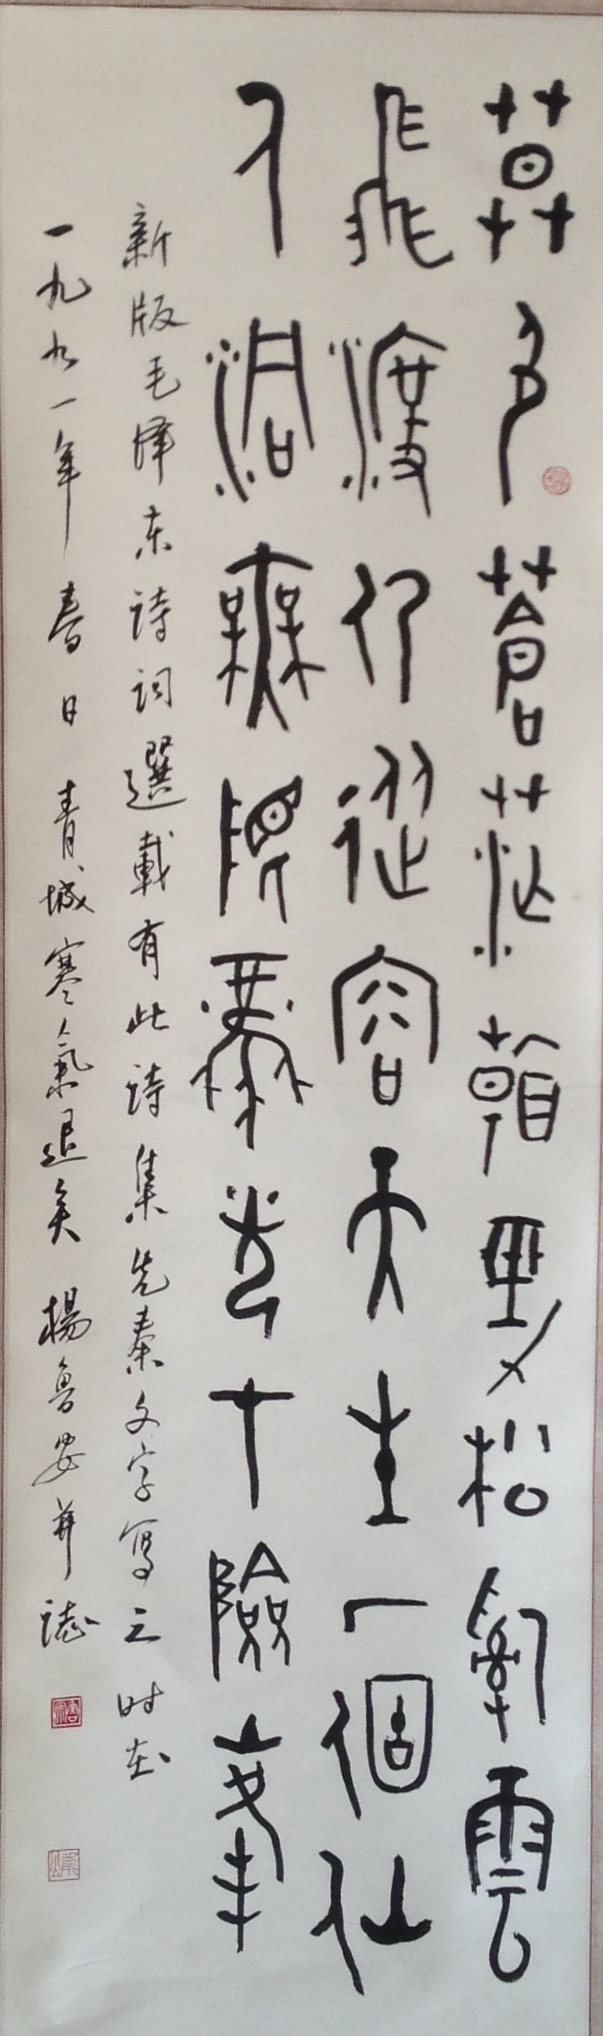 莫色蒼茫看勁松亂雲
飛渡仍從容天生一個仙
人洞無限風光在險峰
新版毛泽东诗词選載有此诗集先秦文字写之时在
一九九一年春日青城寒氣退矣楊魯安并誌